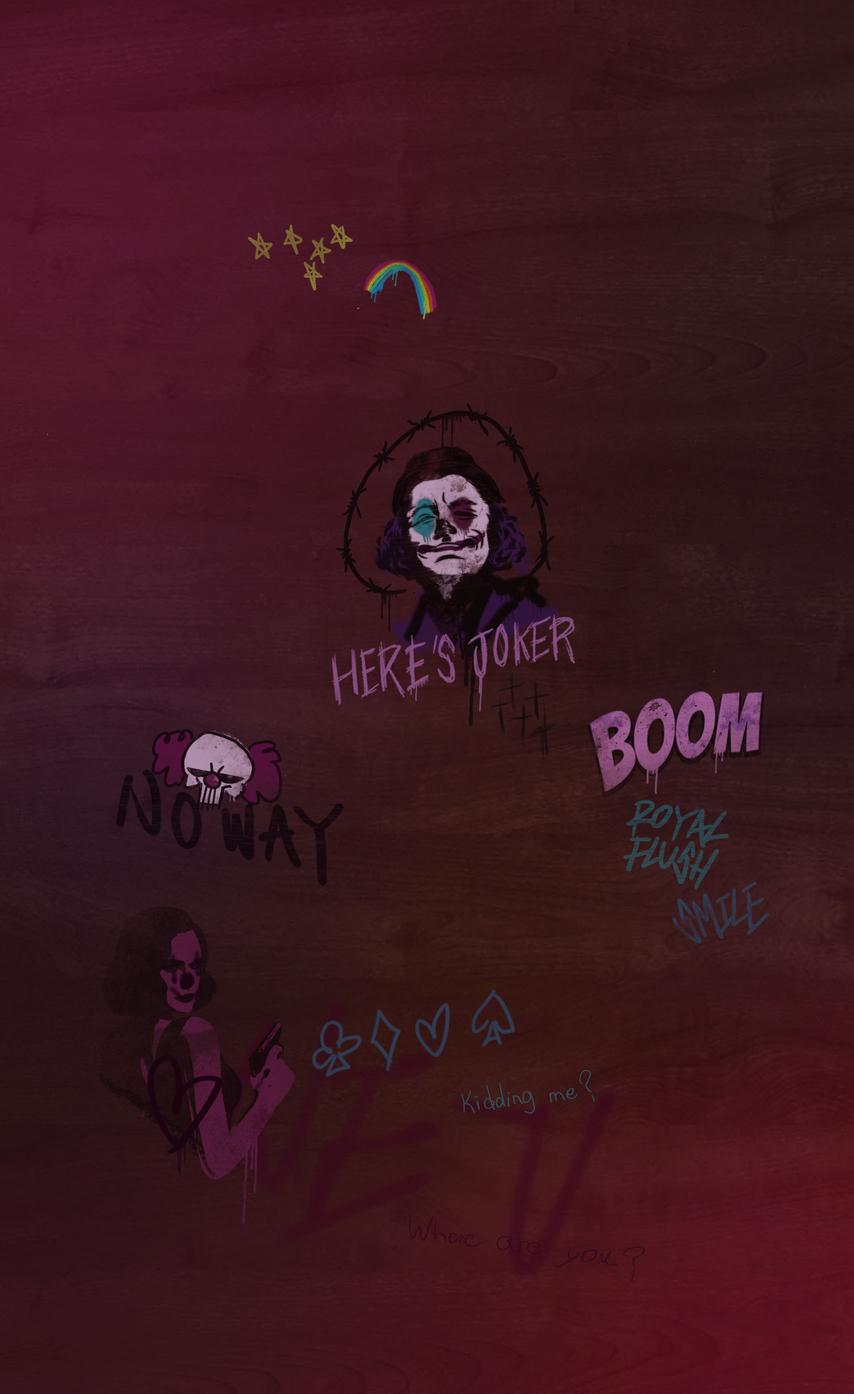 HERE'S JOKER
BOOM
NO WAY
ROYAL
FLUSH
SMILE
Kidding me?
Where are you?